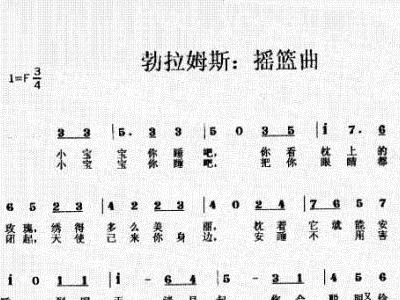 勃拉姆斯：摇篮曲
1=F 3/4
3 3 | 5. 3 3 | 5 0 3 5 | i 7. 6
小宝宝你睡吧，你看枕上的
小宝宝你睡吧，把你眼睛都
6 5 2 3 | 4 2 2 3 | 4 0 2 4 | 7 6 5 7
玫瑰，绣得多么美丽，枕着它就能安
闭起，天使已来你身边，安睡不用害
i 0 1 1 | i - 6 4 | 5 - 3 1 | 4 5 6